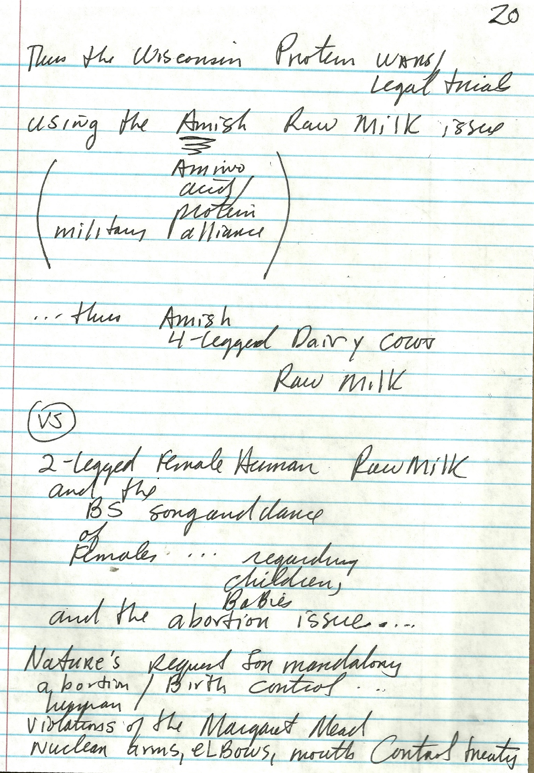 20
Thus the Wisconsin Protein WARS/
Legal trial
using the Amish Raw Milk issue
Amino
acid/
protein
military alliance
... thus Amish
4-legged Dairy cows
Raw Milk
VS
2-legged Female Human Raw Milk
and the
BS song and dance
of
Females .... regarding
children,
Babies
and the abortion issue.....
Nature's request for mandatory
abortion / Birth control ...
human
violations of the Margaret Mead
Nuclear arms, elBows, mouth Control treaty